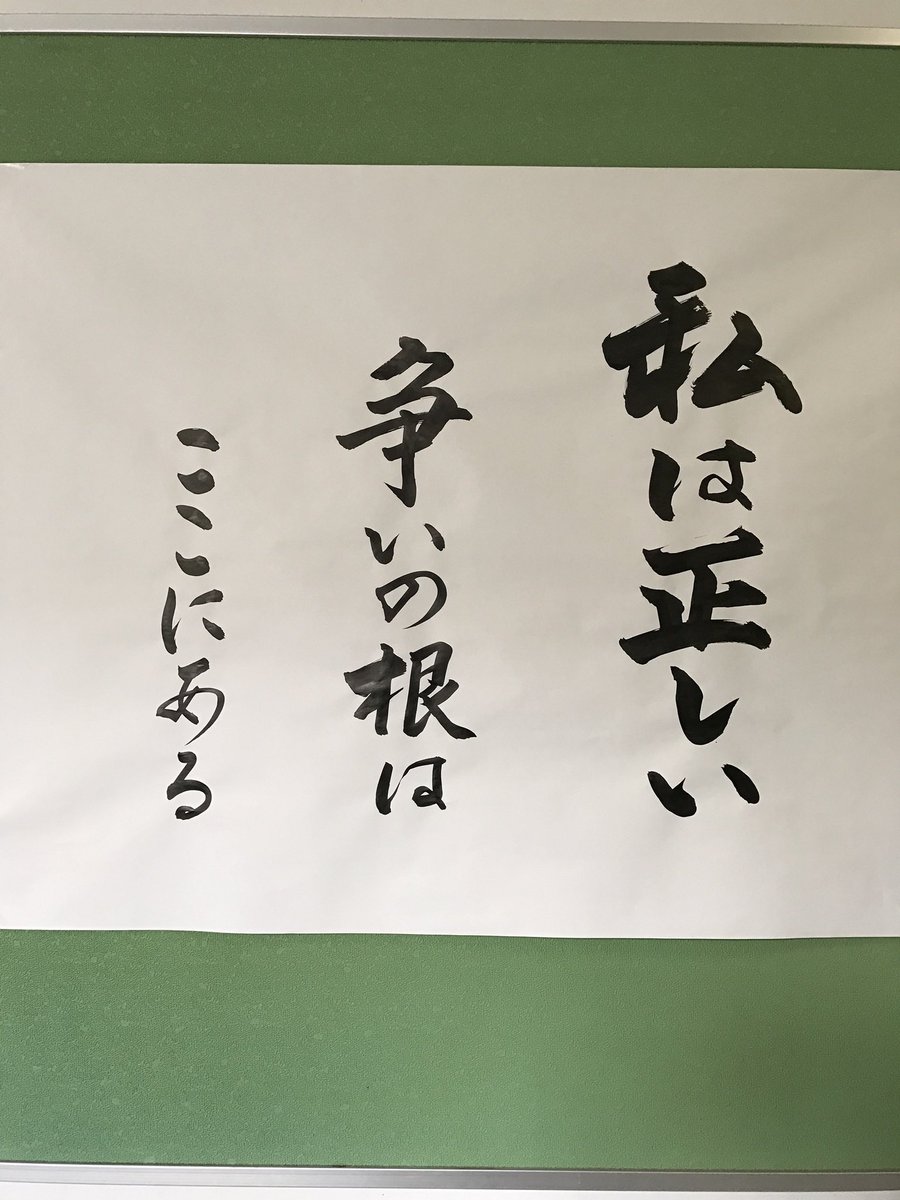 私は正しい
争いの根は
ここにある